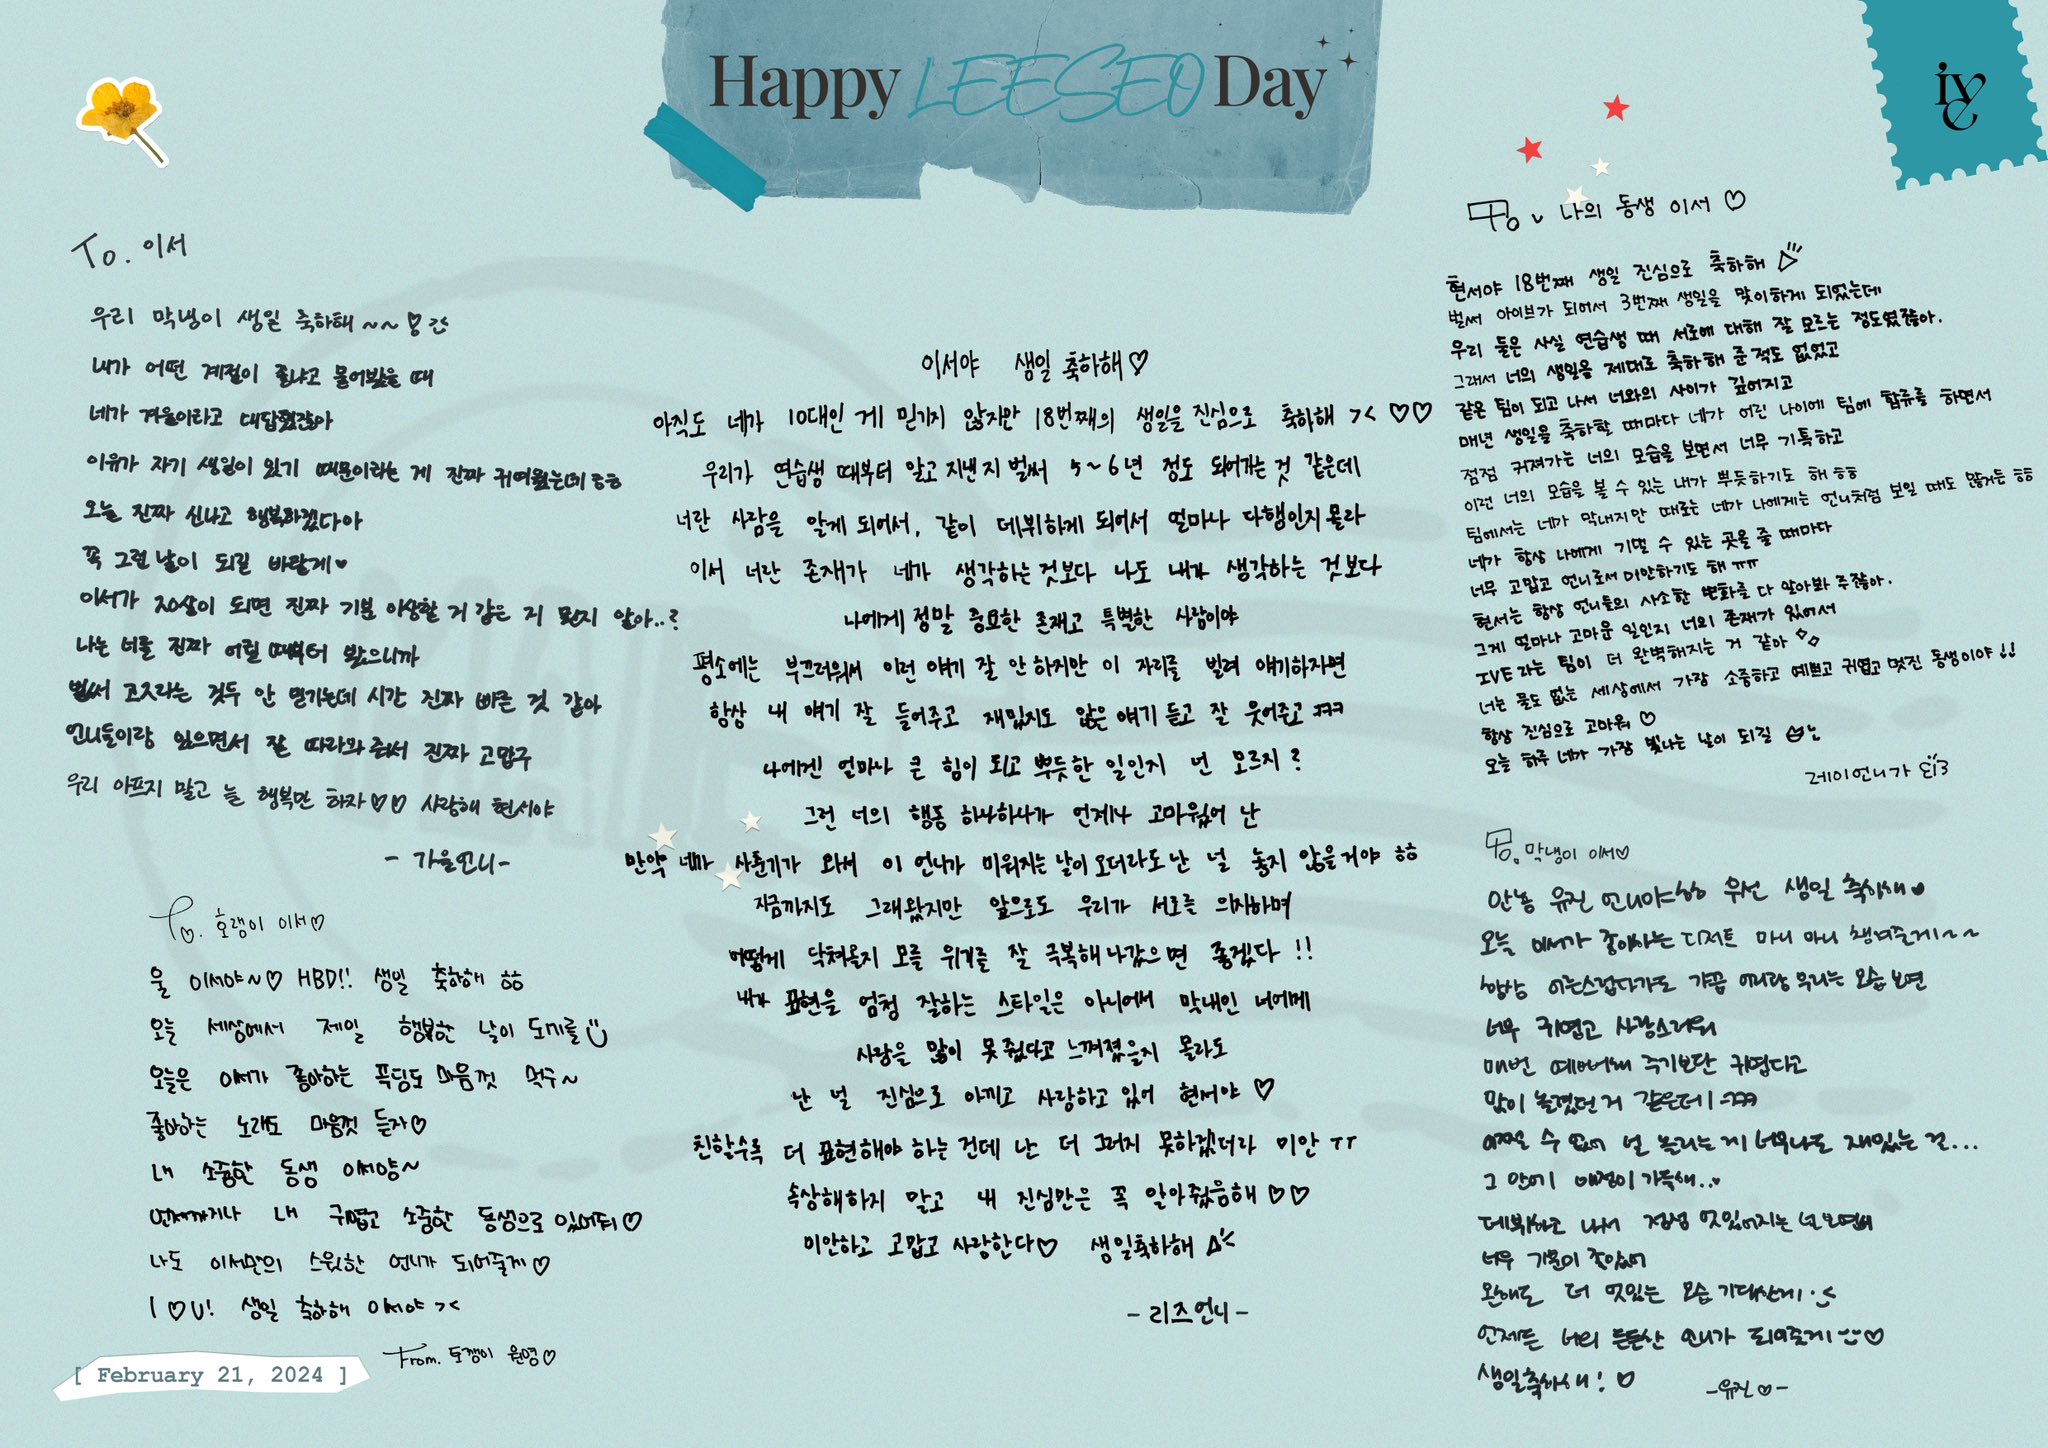 Happy LEESEO Day
ive
To. 이서
우리 막냉이 생일 축하해~~♡
내가 어떤 계절이 좋냐고 물어봤을 때
네가 겨울이라고 대답했잖아
이유가 자기 생일이 있기 때문이라는 게 진짜 귀여웠는데 ㅎㅎ
오늘 진짜 신나고 행복하겠다아
꼭 그런 날이 되길 바랄게♥
이서가 20살이 되면 진짜 기분 이상할 거 같은 지 뭔지 알아..?
나는 너를 진짜 어릴 때부터 봤으니까
벌써 고3라는 것두 안 믿기는데 시간 진짜 빠른 것 같아
언니들이랑 있으면서 잘 따라와줘서 진짜 고맙구
우리 아프지 말고 늘 행복만 하자♡♡ 사랑해 현서야
- 가을언니 -
To. 호랭이 이서♡
울 이서야~♡ HBD!! 생일 축하해 ㅎㅎ
오늘 세상에서 제일 행복한 날이 되기를
오늘은 이서가 좋아하는 푹딩도 마음껏 먹구~
좋아하는 노래도 마음껏 듣자♡
내 소중한 동생 이서양~
언제까지나 내 귀엽고 소중한 동생으로 있어줘♡
나도 이서만의 스윗한 언니가 되어줄게♡
I ♡ U! 생일 축하해 이서야 ><
From. 토깽이 원영♡
[ February 21, 2024 ]
이서야 생일 축하해♡
아직도 네가 10대인 게 믿기지 않지만 18번째의 생일을 진심으로 축하해 >< ♡♡
우리가 연습생 때부터 알고 지낸지 벌써 5~6년 정도 되어가는 것 같은데
너란 사람을 알게 되어서, 같이 데뷔하게 되어서 얼마나 다행인지 몰라
이서 너란 존재가 네가 생각하는 것보다 나도 내가 생각하는 것보다
나에게 정말 중요한 존재고 특별한 사람이야
평소에는 부끄러워서 이런 얘기 잘 안 하지만 이 자리를 빌려 얘기하자면
항상 내 얘기 잘 들어주고 재밌지도 않은 얘기 듣고 잘 웃어주고 ㅋㅋㅋ
나에겐 얼마나 큰 힘이 되고 뿌듯한 일인지 넌 모르지?
그런 너의 행동 하나하나가 언제나 고마웠어 난
만약 네가 사춘기가 와서 이 언니가 미워지는 날이 오더라도 난 널 놓지 않을거야 ㅎㅎ
지금까지도 그래왔지만 앞으로도 우리가 서로를 의지하며
어떻게 닥쳐올지 모를 위기를 잘 극복해 나갔으면 좋겠다 !!
내가 표현을 엄청 잘하는 스타일은 아니어서 막내인 너에게
사랑을 많이 못 줬다고 느껴졌을지 몰라도
난 널 진심으로 아끼고 사랑하고 있어 현서야 ♡
친할수록 더 표현해야 하는 건데 난 더 그러지 못하겠더라 미안 ㅜㅜ
속상해하지 말고 내 진심만은 꼭 알아줬음해 ♡♡
미안하고 고맙고 사랑한다♡ 생일축하해
- 리즈언니 -
To. 나의 동생 이서 ♡
현서야 18번째 생일 진심으로 축하해
벌써 아이브가 되어서 3번째 생일을 맞이하게 되었는데
우리 둘은 사실 연습생 때 서로에 대해 잘 모르는 정도였잖아.
그래서 너의 생일을 제대로 축하해 준적도 없었고
같은 팀이 되고 나서 너와의 사이가 깊어지고
매년 생일을 축하할 때마다 네가 어린 나이에 팀에 합류를 하면서
점점 커져가는 너의 모습을 보면서 너무 기특하고
이런 너의 모습을 볼 수 있는 내가 뿌듯하기도 해 ㅎㅎ
팀에서는 네가 막내지만 때로는 네가 나에게는 언니처럼 보일 때도 많거든 ㅎㅎ
네가 항상 나에게 기댈 수 있는 곳을 줄 때마다
너무 고맙고 언니로서 미안하기도 해 ㅠㅠ
현서는 항상 언니들의 사소한 변화를 다 알아봐 주잖아.
그게 얼마나 고마운 일인지 너의 존재가 있어서
IVE라는 팀이 더 완벽해지는 거 같아
너는 둘도 없는 세상에서 가장 소중하고 예쁘고 귀엽고 멋진 동생이야 !!
항상 진심으로 고마워 ♡
오늘 하루 네가 가장 빛나는 날이 되길
레이언니가
To. 막냉이 이서♡
안뇽 유진 언니야ㅎㅎ 우선 생일 축하해♥
오늘 이서가 좋아하는 디저트 마니 마니 챙겨줄게~~
항상 어른스럽다가도 가끔 어리광 부리는 모습 보면
너무 귀엽고 사랑스러워
매번 예뻐해 주기보단 귀엽다고
많이 놀렸던 거 같은데 ㅋㅋㅋ
어쩔 수 없어 널 놀리는 게 너무나도 재밌는 걸...
그 안에 애정이 가득해..
데뷔하고 나서 점점 멋있어지는 널 보면서
너무 기분이 좋았어
올해도 더 멋있는 모습 기대할게
언제든 너의 든든한 언니가 되어줄게 ♡
생일축하해! ♡
- 유진♡ -